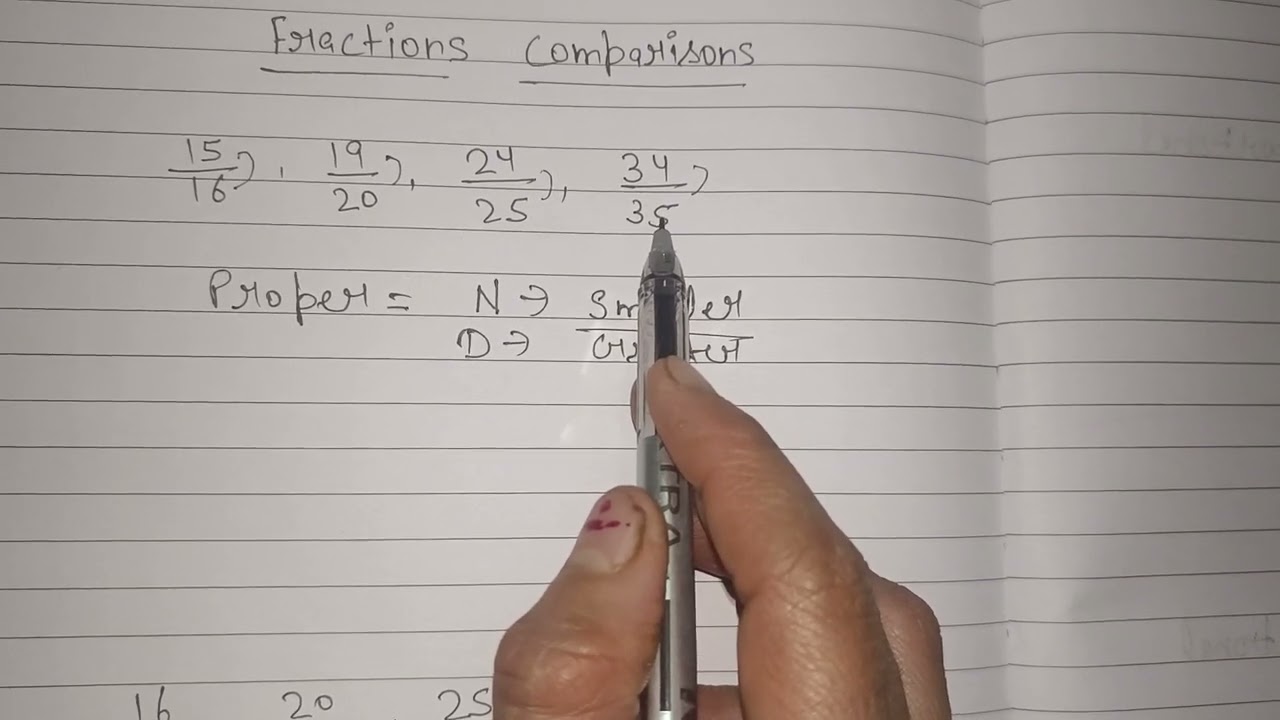 Fractions Comparisons
15/16), 19/20), 24/25), 34/35)
Proper = N → Smaller
D → Greater
16 20 25